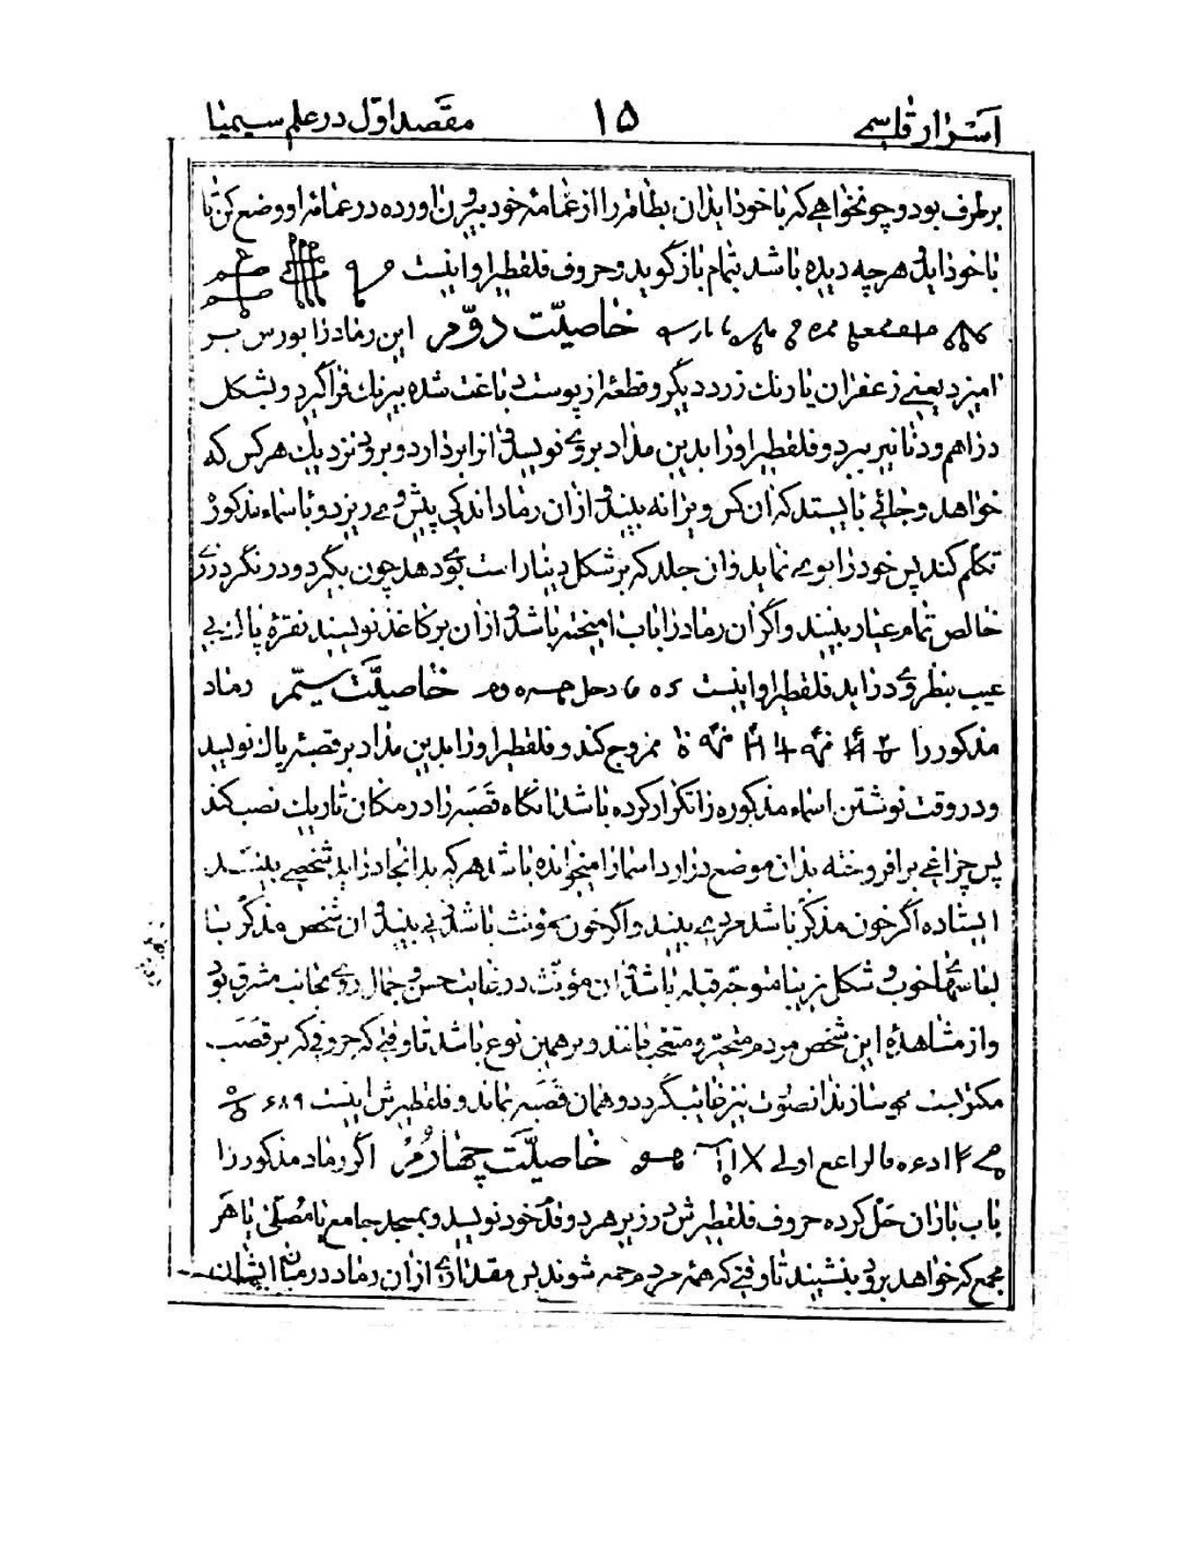 اسرار قاسمی ۱۵ مقصد اول در علم سیمیا
برطرف بود و چون خواهی که با خود اید ان بطاقه را از عمامه خود بیرون اورده در عمامه او وضع کن تا
با خود اید هرچه دیده باشد بتمام باز گوید و حروف فلقطیر او اینست
خاصیت دوم این رماد را بورس بر
امیزد یعنی زعفران یا رنك زرد دیگر و قطعه از پوست دباغت شده بیرنك فرا گیرد و بشکل
دراهم و دنانیر ببرد و فلقطیر او را بدین مداد بروی نویسد و انرا بردارد و برود نزدیك هرکس که
خواهد و جائی بایستد که ان کس ویرا نه بیند و از ان رماد اندکی پیش وی ریزد و با سماء مذکور
تکلم کند پس خود را بوی نماید و ان جلد که بر شکل دینار است بوی دهد چون بگیرد و در نگرد زری
خالص تمام عیار بیند و اگر ان رماد را با اب امیخته باشد و از ان بر کاغذ نویسند نقرۀ پاك بی
عیب بنظر وی در اید فلقطیر او اینست خاصیت سیم رماد
مذکور را ممزوج کند و فلقطیر او را بدین مداد بر قصبۀ پاك نویسد
و در وقت نوشتن اسماء مذکوره را تکرار کرده باشد انگاه قصبه را در مکان تاریك نصب کند
پس چراغی برافروخته بدان موضع در ارد اسما را میخوانده باشد هرکه بدانجا در اید شخصی بیند
ایستاده اگر خون مذکر باشد مردی بیند و اگر خون مؤنث باشد زنی بیند و ان شخص مذکر با
لباسهای خوب و شکل زیبا متوجه قبله باشد و ان مؤنث در غایت حسن و جمال روی بجانب مشرق بود
و از مشاهدۀ این شخص مردم متحیر و متعجب بمانند و بر همین نوع باشد تا وقتی که حروفی که بر قصب
مکتوبست محو سازند انصورت نیز غایب گردد و همان قصبه بماند و فلقطیرش اینست
خاصیت چهارم اگر رماد مذکور را
باب باران حل کرده حروف فلقطیرش در زیر هر دو قدم خود نویسد و بمسجد جامع یا مصلی یا هر
مجمع که خواهد برود بنشیند تا وقتی که همه مردم جمع شوند پس مقداری از ان رماد در میان ایشان